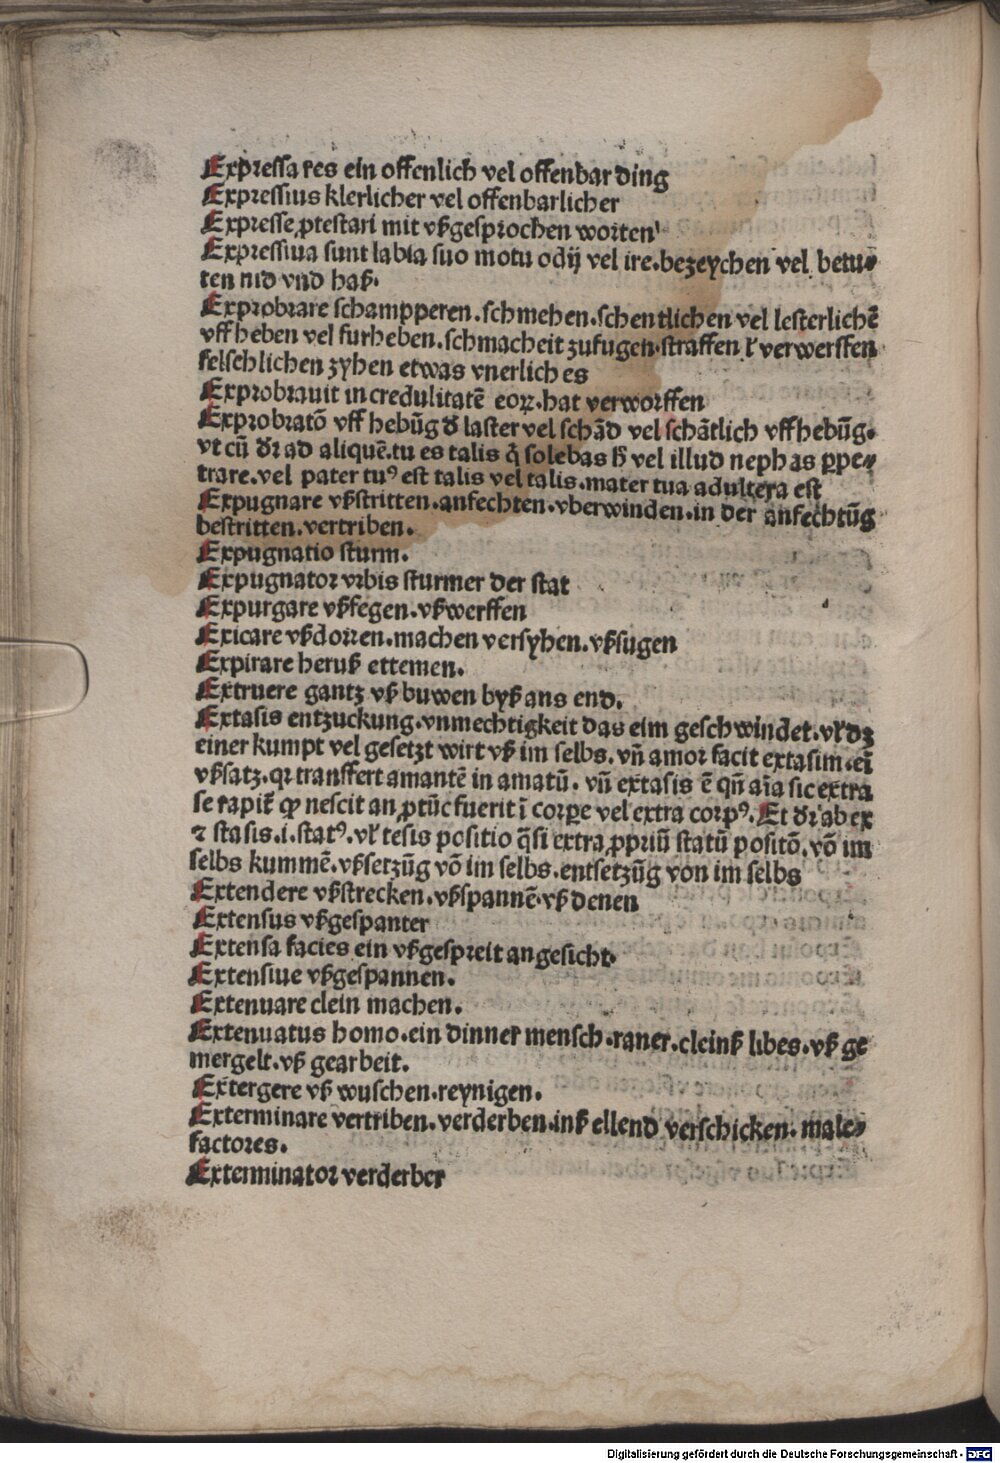 Expressa res ein offenlich vel offenbar ding
Expressius klerlicher vel offenbarlicher
Expresse ꝓtestari mit vßgesprochen worten
Expressiua sunt labia suo motu odij vel ire. bezeychen vel betu⸗
ten nid vnd haß.
Exprobrare schampperen. schmehen. schentlichen vel lesterlichē
vff heben vel furheben. schmacheit zufugen. straffen ł verwerffen
felschlichen zyhen etwas vnerlich es
Exprobrauit in credulitatē eoꝝ. hat verworffen
Exprobratō vff hebūg đ laster vel schād vel schātlich vffhebūg.
vt cū đr ad aliquē. tu es talis q̇ solebas ħ vel illud nephas ꝑpe⸗
trare. vel pater tuꝰ est talis vel talis. mater tua adultera est
Expugnare vßstritten. anfechten. vberwinden. in der anfechtūg
bestritten. vertriben.
Expugnatio sturm.
Expugnator vrbis sturmer der stat
Expurgare vßfegen. vßwerffen
Exicare vßdorren. machen versyhen. vßsugen
Expirare heruß ettemen.
Extruere gantz vß buwen byß ans end.
Extasis entzuckung. vnmechtigkeit das eim geschwindet. vł dz
einer kumpt vel gesetzt wirt vß im selbs. vn̄ amor facit extasim. ei
vßsatz. qr transffert amantē in amatū. vn̄ extasis ē qn̄ aīa sic extra
se rapit̄ ꝙ nescit an ꝓtūc fuerit ī corꝑe vel extra corpꝰ. Et đr ab ex
⁊ stasis. i. statꝰ. vł tesis positio q̄si extra ꝓpriū statū positō. vō im
selbs kummē. vßsetzūg vō im selbs. entsetzūg von im selbs
Extendere vßstrecken. vßspannē. vß denen
Extensus vßgespanter
Extensa facies ein vßgespreit angesicht.
Extensiue vßgespannen.
Extenuare clein machen.
Extenuatus homo. ein dinner mensch. raner. cleinß libes. vß ge
mergelt. vß gearbeit.
Extergere vß wuschen. reynigen.
Exterminare vertriben. verderben. inß ellend verschicken. male⸗
factores.
Exterminator verderber
Digitalisierung gefördert durch die Deutsche Forschungsgemeinschaft - DFG